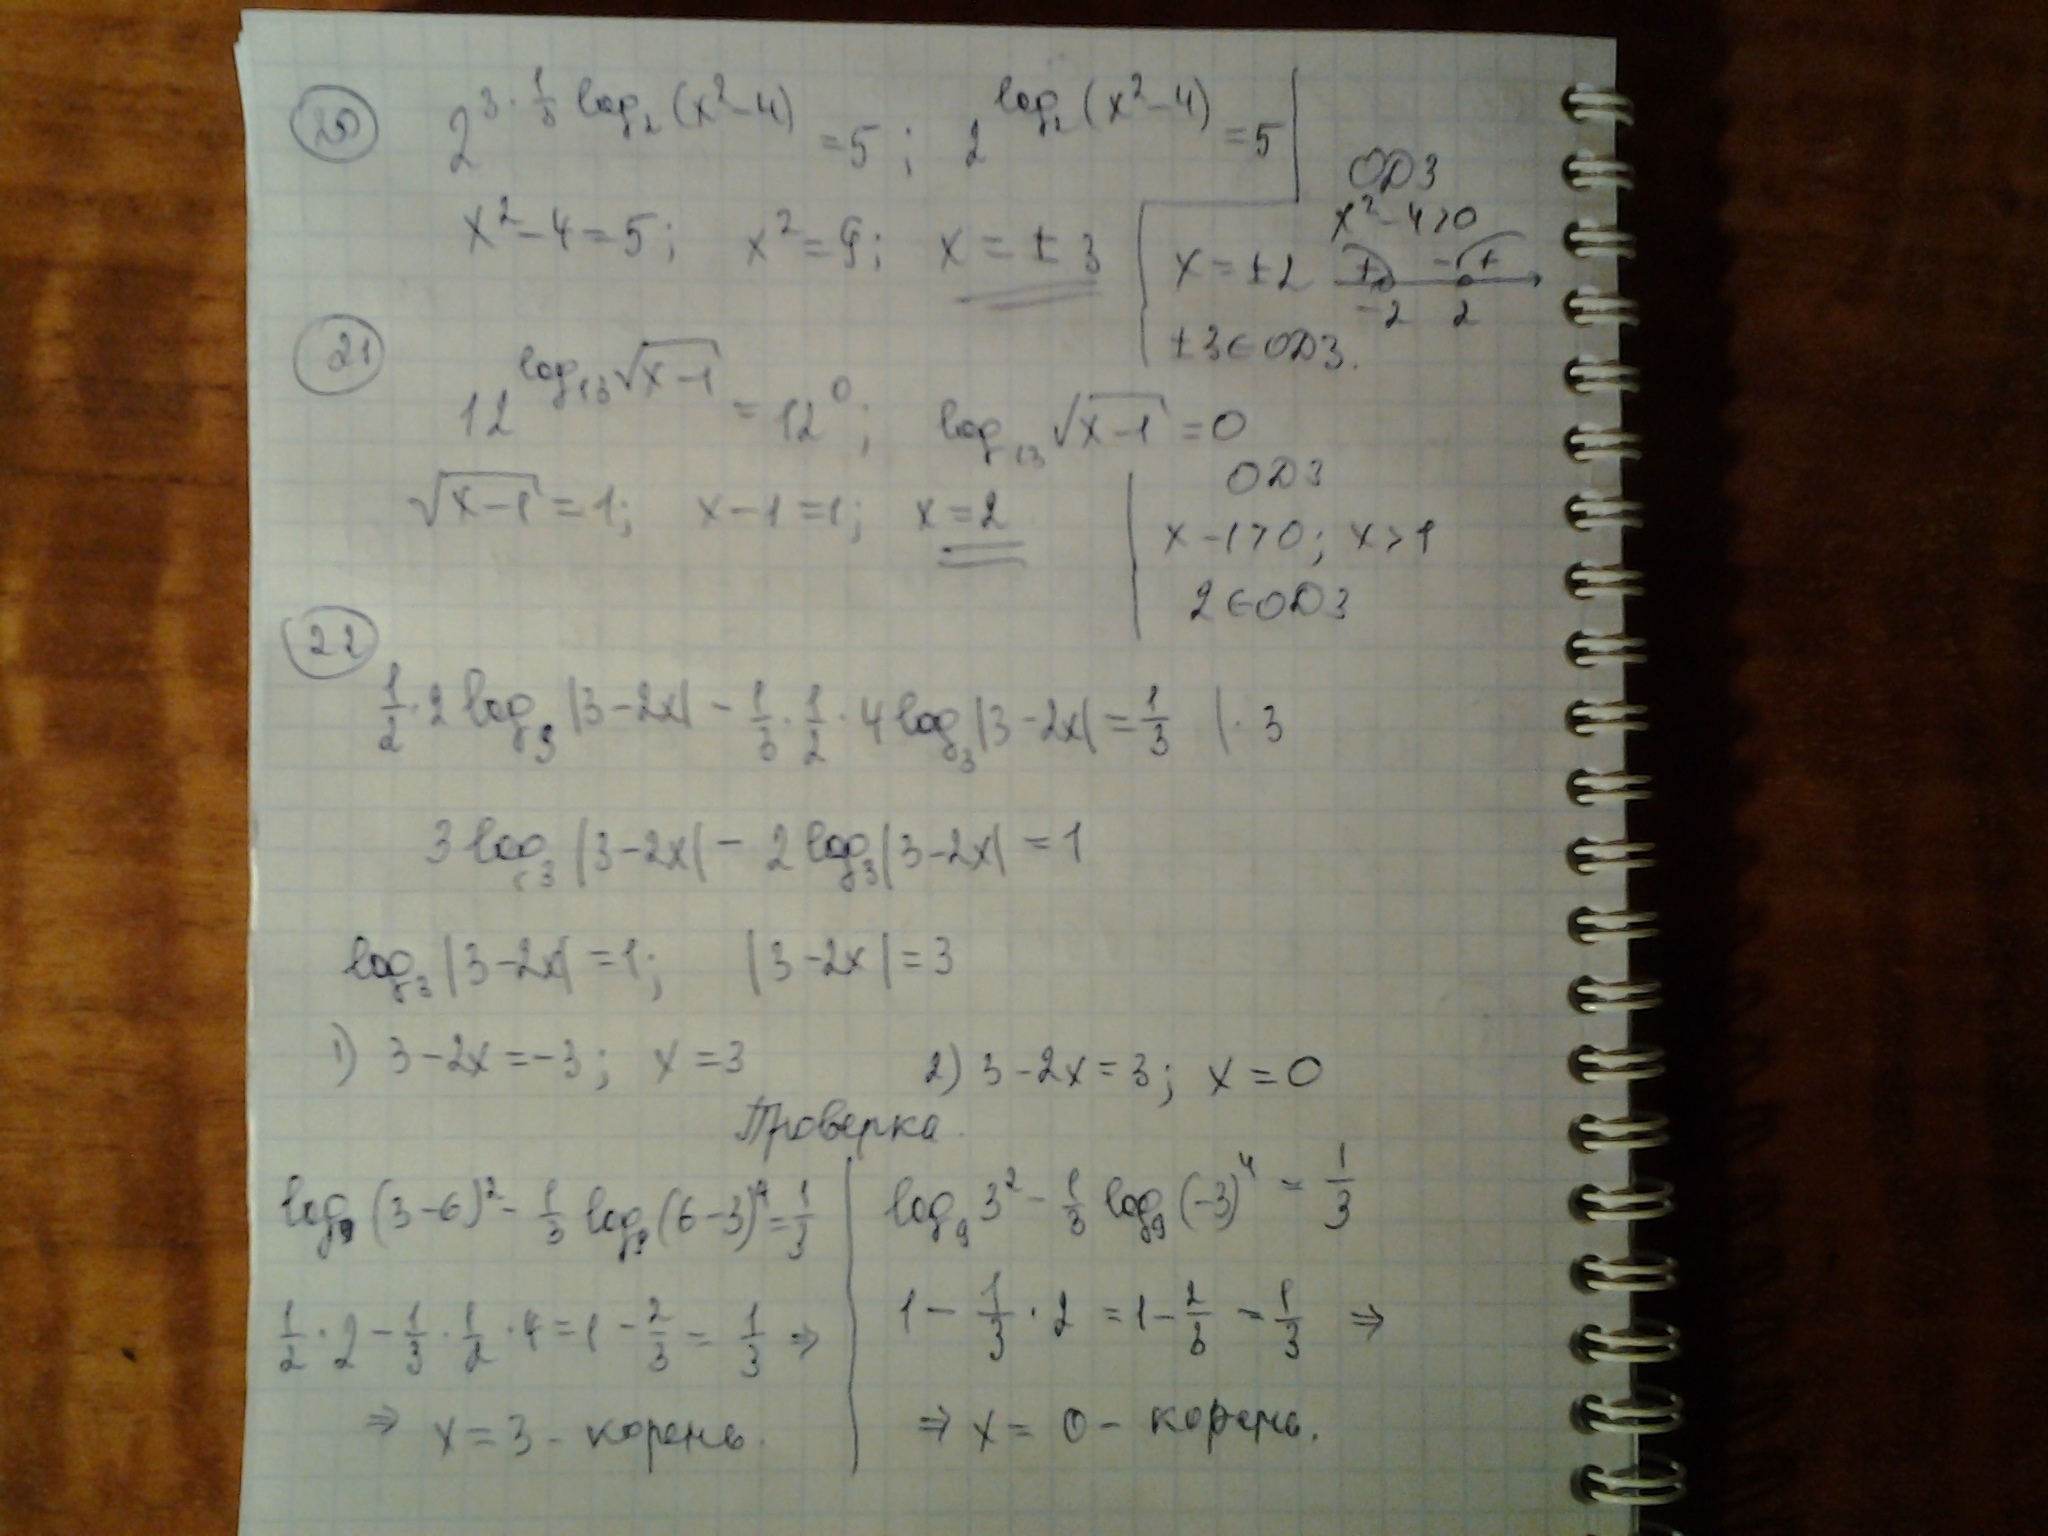 20 2^{3·\frac{1}{3} log_2(x²-4)} = 5; 2^{log_2(x²-4)} = 5
ОДЗ
x²-4>0
x²-4=5; x²=9; x=±3
x=±2 + - +
-2 2
±3∈ОДЗ.
21
12^{log_{13}√(x-1)} = 12^0; log_{13}√(x-1) = 0
√(x-1) = 1; x-1=1; x=2
ОДЗ
x-1>0; x>1
2∈ОДЗ
22
\frac{1}{2}·2 log_3|3-2x| - \frac{1}{3}·\frac{1}{2}·4 log_3|3-2x| = \frac{1}{3} |·3
3 log_3|3-2x| - 2 log_3|3-2x| = 1
log_3|3-2x| = 1; |3-2x| = 3
1) 3-2x=-3; x=3 2) 3-2x=3; x=0
Проверка.
log_9(3-6)² - \frac{1}{3} log_9(6-3)^4 = \frac{1}{3}
\frac{1}{2}·2 - \frac{1}{3}·\frac{1}{2}·4 = 1 - \frac{2}{3} = \frac{1}{3} ⇒
⇒ x=3 - корень.
log_9 3² - \frac{1}{3} log_9(-3)^4 = \frac{1}{3}
1 - \frac{1}{3}·2 = 1 - \frac{2}{3} = \frac{1}{3} ⇒
⇒ x = 0 - корень.